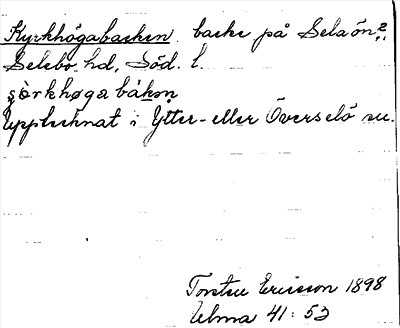 Kyrkhögabacken. backe på Selaön?
Selebo hd, Söd. l.
çø̀rkhøga bákən
Upptecknat i Ytter- eller Överselö sn.
Torsten Ericsson 1898
Ulma 41:53